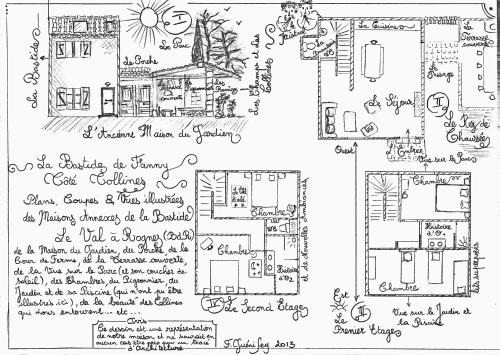 I
Le Parc
La Bastide
Le Porche
L'Ancienne Maison du Gardien
Des Champs et des
Collines
La Cuisine
La Terrasse
couverte
Le Séjour
II
Le Rez de
Chaussée
L'Entrée
Ouest
Vue sur le Parc
La Bastide de Fanny
Côté Collines
Plans, Coupes & Vues illustrées
des Maisons Annexes de la Bastide
Le Val à Rognes (BdR)
de la Maison du Gardien, du Porche, de la
Cour de Ferme, de la Terrasse couverte,
de la Vue sur le Parc (et son coucher de
soleil), des Chambres, du Pigeonnier, du
Jardin et de sa Piscine (qui n'ont pu être
illustrés ici), de la beauté des Collines
qui nous entourent... etc...
Avis
Ce dessin est une représentation
de notre maison et ne saurait en
aucun cas être pris pour un tracé
d'Architecture
F. Guéni Sey 2013
Chambre
Chambre
IV
Le Second Etage
Chambre
Chambre
Est
III
Le
Premier Etage
Vue sur le Jardin et
la Piscine